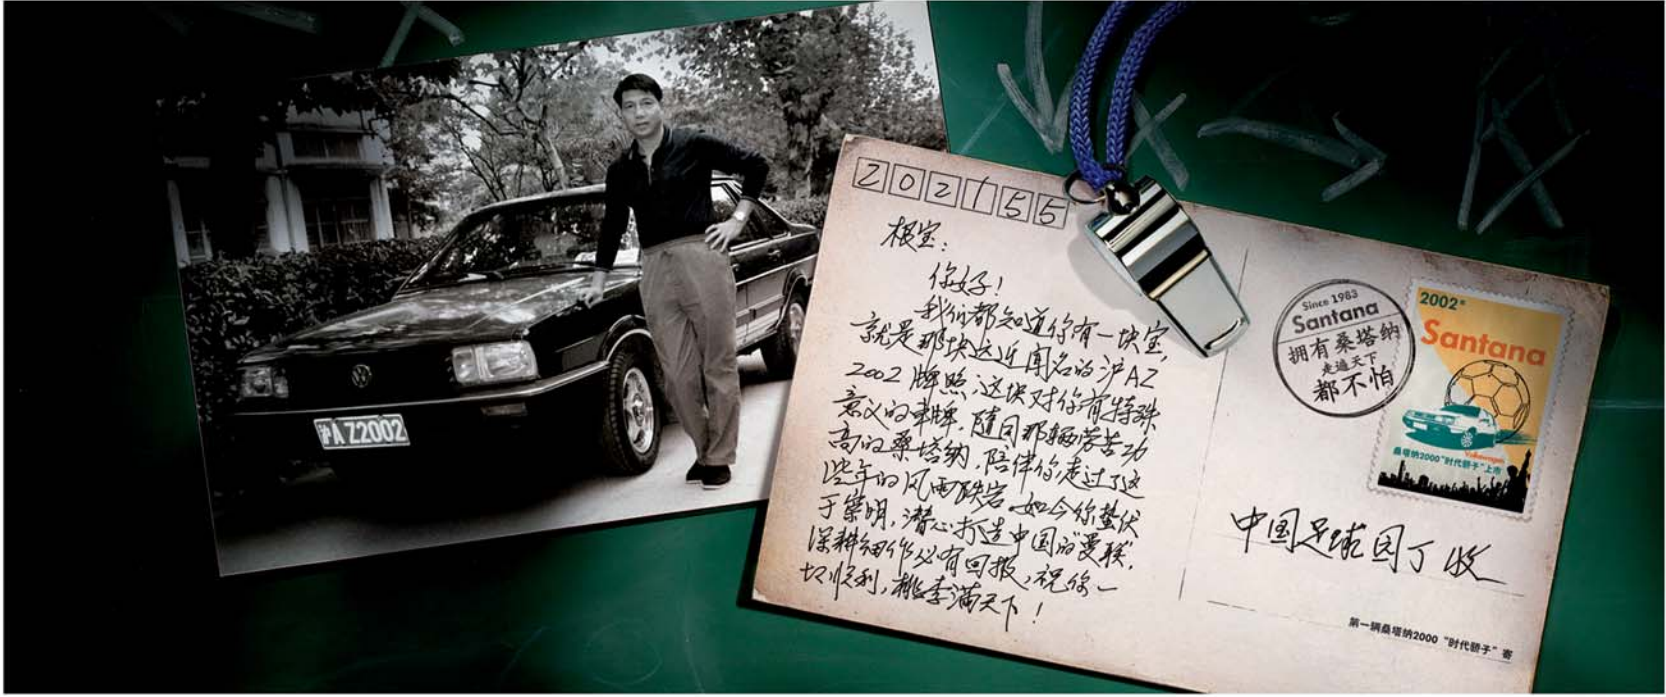 沪A Z2002
202155
根宝:
你好!
我们都知道你有一块宝,
就是那块远近闻名的沪AZ
2002牌照,这块对你有特殊
意义的车牌,随同那辆劳苦功
高的桑塔纳,陪伴你走过了这
些年的风雨跌宕。如今你蛰伏
于崇明,潜心打造中国的"曼联",
深耕细作必有回报,祝你一
切顺利,桃李满天下!
Since 1983
Santana
拥有桑塔纳
走遍天下
都不怕
2002*
Santana
Volkswagen
桑塔纳2000"时代骄子"上市
中国足球园丁 收
第一辆桑塔纳2000 "时代骄子" 寄